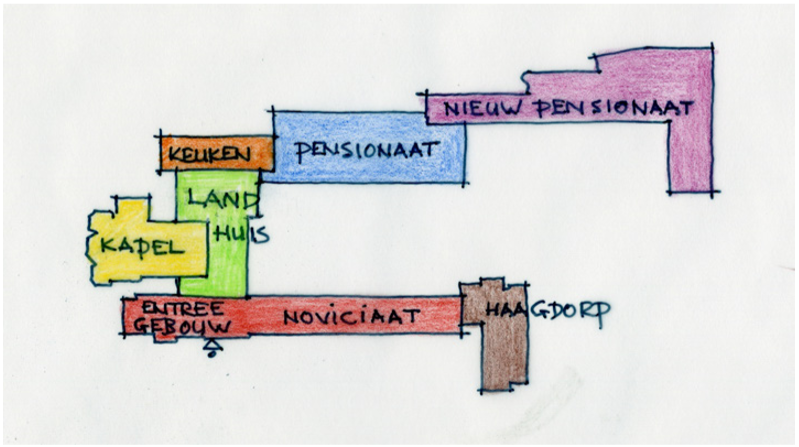 NIEUW PENSIONAAT
KEUKEN
PENSIONAAT
LAND
HUIS
KAPEL
ENTREE
GEBOUW
NOVICIAAT
HAAGDORP